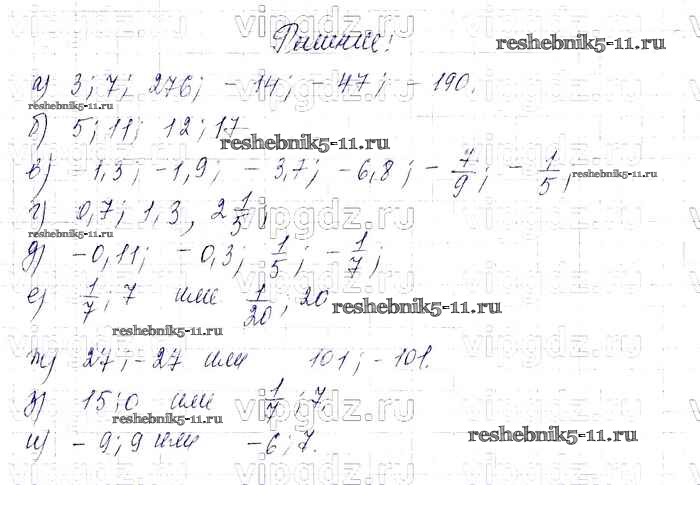 Решение!
reshebnik5-11.ru
а) 3; 7; 276; -14; -47; -190.
reshebnik5-11.ru
б) 5; 11; 12; 17
reshebnik5-11.ru
в) -1,3; -1,9; -3,7; -6,8; -7/9; -1/5;
reshebnik5-11.ru
г) 0,7; 1,3, 2 1/5;
vipgdz.ru
reshebnik5-11.ru
д) -0,11; -0,3; 1/5; -1/7;
vipgdz.ru
е) 1/7; 7 или 1/20; 20
reshebnik5-11.ru
reshebnik5-11.ru
ж) 27; -27 или 101; -101.
vipgdz.ru
з) 15; 0 или 1/7; 7
vipgdz.ru
reshebnik5-11.ru
и) -9; 9 или -6; 7.
reshebnik5-11.ru
vipgdz.ru